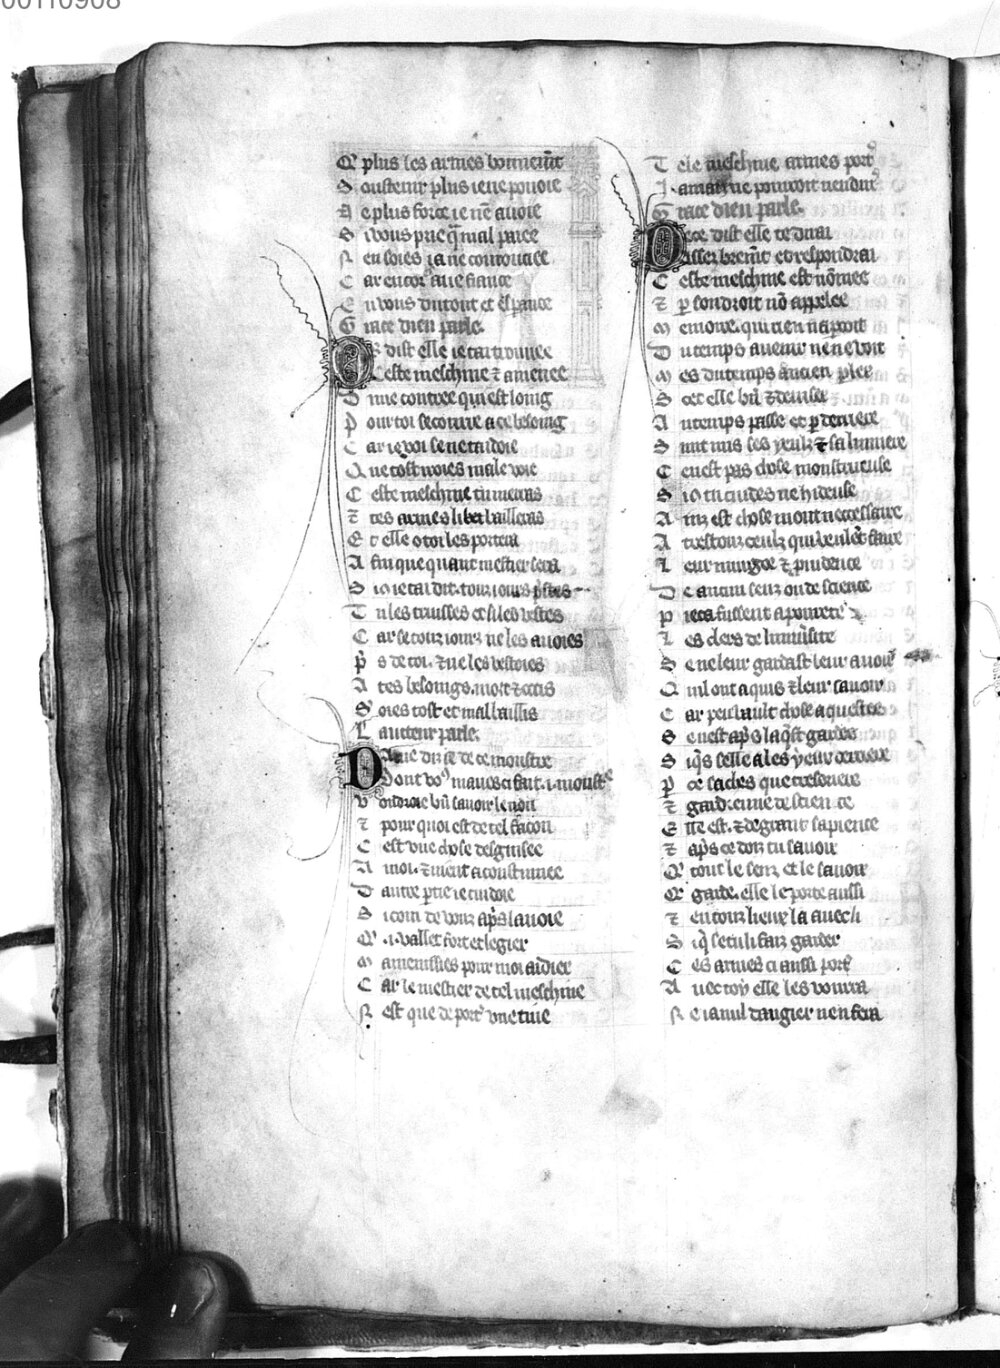 00110908
Q' plus les armes bonnem̃t
S oustenir plus ie ne pouoie
A e plus force ie nẽ auoie
S i vous prie q̃ mal paiee
N en soies ia ne courroucee
C ar encor ai ie fiance
E n vous du tout et esp̃ance
G race dieu parle.
O r dist elle ie tai trouuee
C este meschine ⁊ amenee
D une contree qui est loing
P our toi secourre a ce besoing
C ar ie voi se ne taidoie
Q ue tost iroies male voie
C este meschine tu menras
⁊ tes armes li bailleras
E t elle o toi les portera
A fin que quant mestier sera
S i 9 ie tai dit. tousiours p̃stes
T u les truisses et si les vestes
C ar se tousiours ne les auoies
P̃ s de toi. ⁊ ne les vestoies
A tes besoings. mort ⁊ occis
S' oies tost et mal baillis
L' aucteur parle.
D ame dis ie de ce monstre
Dont vo9 maues ci fait .i. monstre
V oudroie biẽ sauoir le nõ
⁊ pour quoi est de tel facon
C est vne chose desguisee
A moi. ⁊ niẽt acoustumee
D autre p̱tie ie cuidoie
S icom de vous ap̃s lauoie
Q' .i. vallet fort et legier
M amenissies pour moi aidier
C ar le mestier de tel meschine
N est que de port' vne tine
T ele meschine armes port'
J amais ne pouroit n endur'
G race dieu parle.
D e ce dist elle te dirai
A sses briem̃t et respondrai
C este meschine est nõmee
⁊ p̱ son droit nõ appelee
M emoire. qui rien napcoit
D u temps auenir ne ne voit
M es du temps ancien p̱lee
S cet elle biẽ ⁊ deuisee
A u temps passe et p̱ derriere
S unt mis ses yeulz ⁊ sa lumiere
C e nest pas chose monstrueuse
S i 9 tu cuides ne hideuse
A ins est chose mout necessaire
A trestous ceulz qui veulẽt faire
L eur mangoe ⁊ prudence
D e aucun sens ou de science
P ieca fussent a pourete
L es clers de luniu̾site
S e ne leur gardast leur auoir
Q uil ont aquis ⁊ leur sauoir
C ar peu uault chose aquestee
S e nest ap̃s laq̃st gardee
S iq̃s selle a les yeux derriere
P' ce saches que tresoriere
⁊ gardienne de science
E lle est. ⁊ de grant sapience
⁊ ap̃s ce dois tu sauoir
Q' tout le sens et le sauoir
Q' garde. elle le porte aussi
⁊ en tous lieus la auec li
S iq̃ se tu li fais garder
C es armes ci aussi port'
A uec toy elle les voura
N e ia nul dangier nen fera